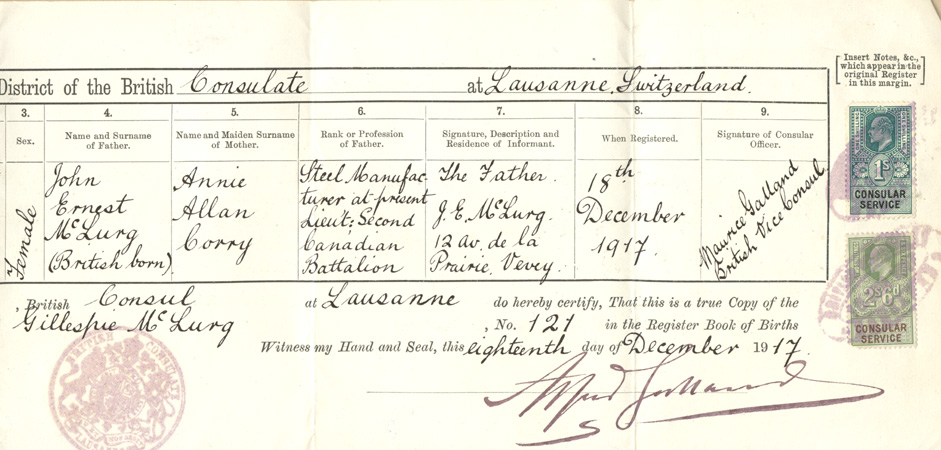 Insert Notes, &c.,
which appear in the
original Register
in this margin.
District of the British Consulate at Lausanne, Switzerland.
3. 4. 5. 6. 7. 8. 9.
Sex. Name and Surname of Father. Name and Maiden Surname of Mother. Rank or Profession of Father. Signature, Description and Residence of Informant. When Registered. Signature of Consular Officer.
Female
John
Ernest
McLurg
(British born)
Annie
Allan
Corry
Steel Manufac-
turer at present
Lieut: Second
Canadian
Battalion
The Father.
J. E. McLurg.
12 Av. de la
Prairie, Vevey.
18th
December
1917.
Maurice Galland
British Vice Consul.
1s
CONSULAR
SERVICE
2s6d
CONSULAR
SERVICE
, British Consul at Lausanne do hereby certify, That this is a true Copy of the
Gillespie McLurg , No. 121 in the Register Book of Births
Witness my Hand and Seal, this eighteenth day of December 1917.
Alfred Galland
BRITISH CONSULATE